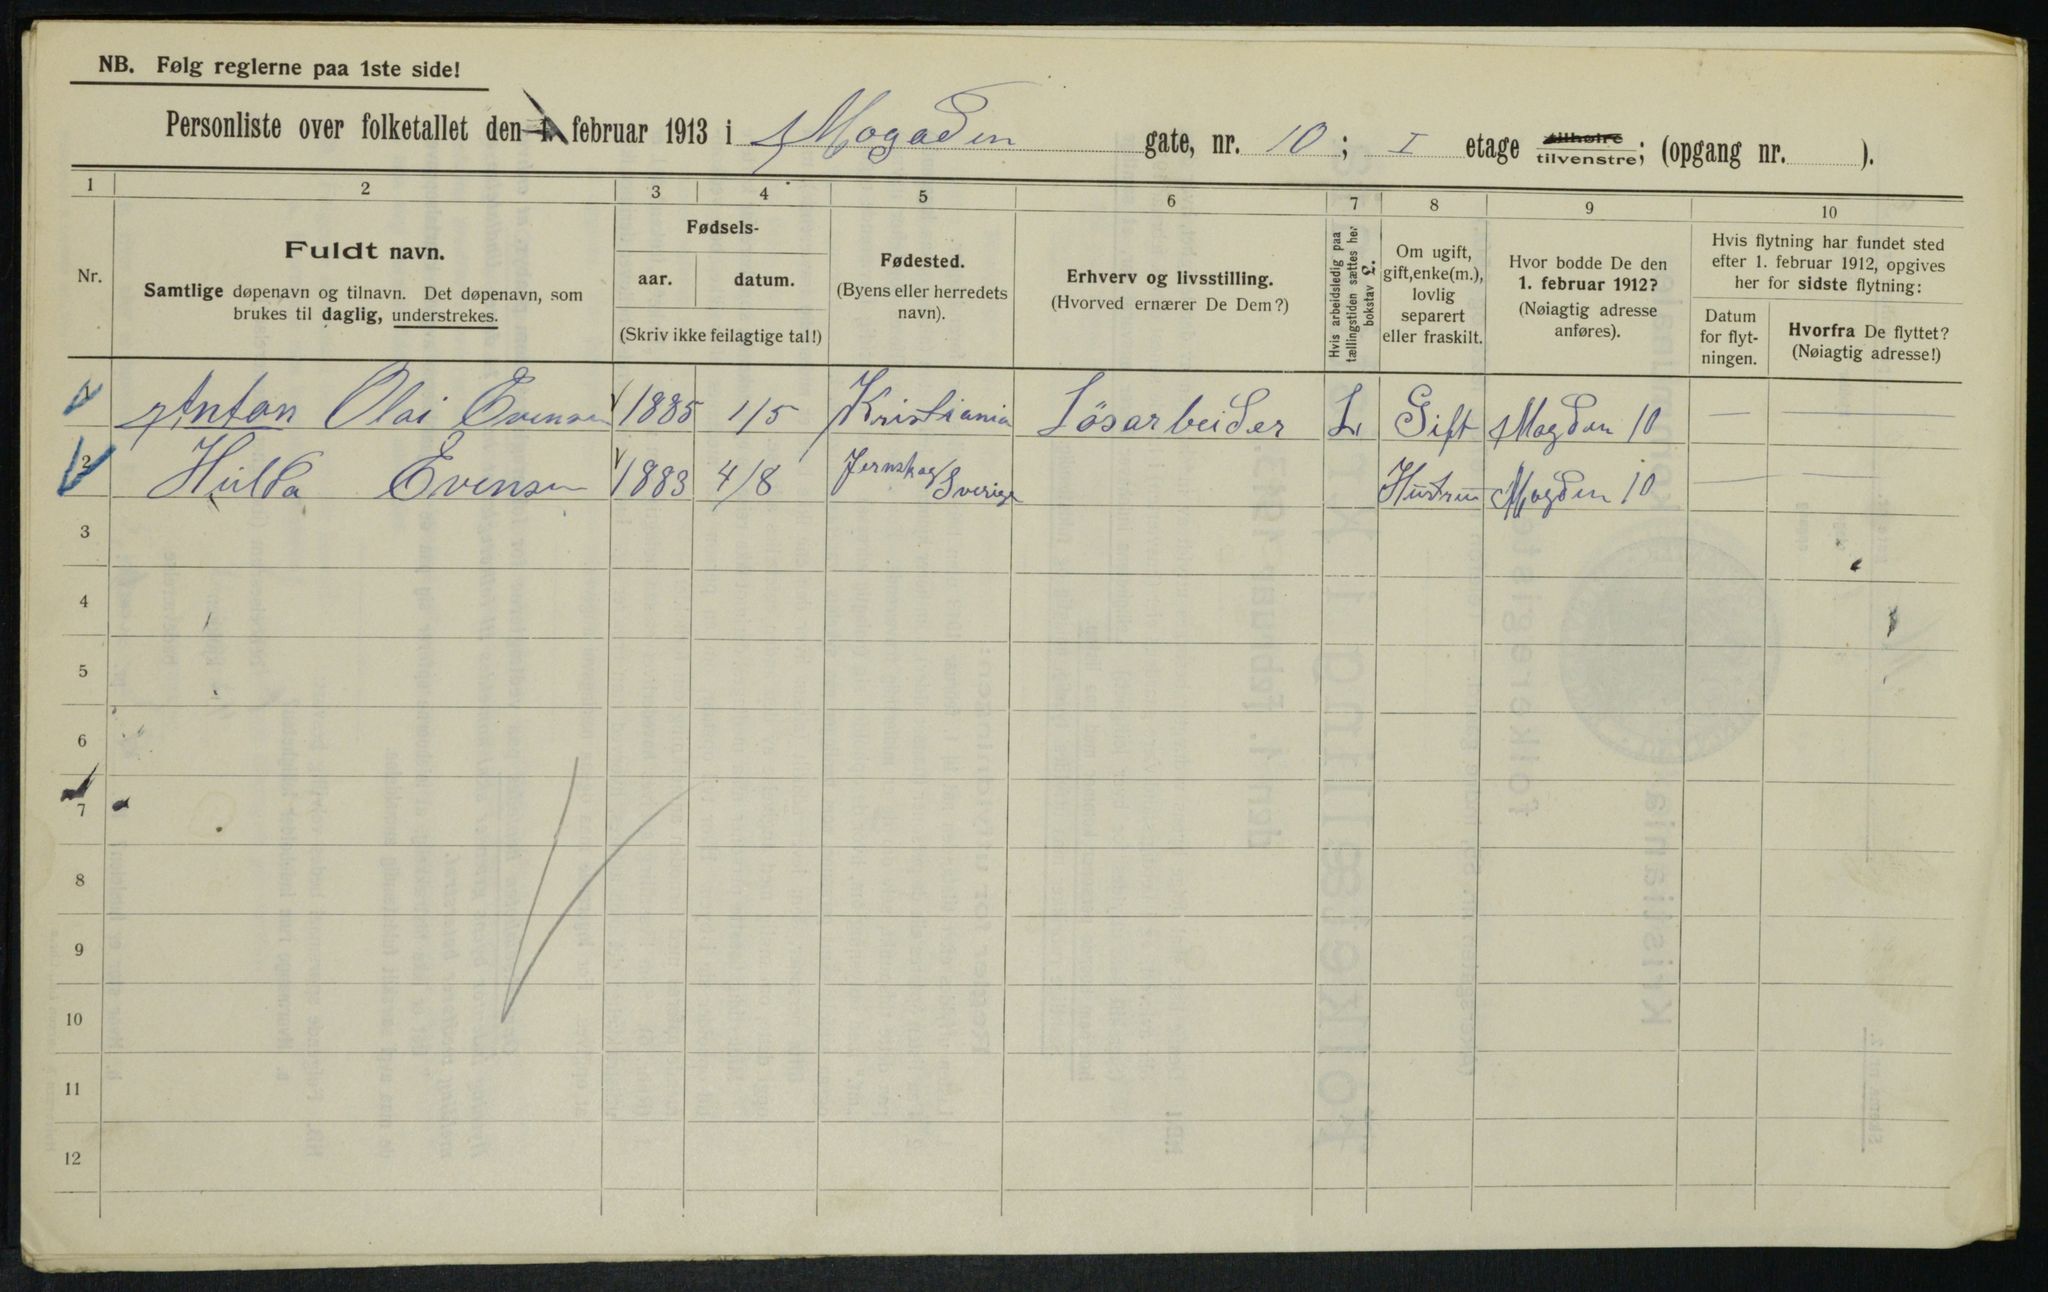 NB. Følg reglerne paa 1ste side!
Personliste over folketallet den 1. februar 1913 i Mogaden gate, nr. 10; I etage tilhøire tilvenstre; (opgang nr. ).
1 2 3 4 5 6 7 8 9 10
Nr.
Fuldt navn.
Samtlige døpenavn og tilnavn. Det døpenavn, som
brukes til daglig, understrekes.
Fødsels-
aar. datum.
(Skriv ikke feilagtige tal!)
Fødested.
(Byens eller herredets
navn).
Erhverv og livsstilling.
(Hvorved ernærer De Dem?)
Hvis arbeidsledig paa
tællingstiden sættes her
bokstav L.
Om ugift,
gift, enke(m.),
lovlig
separert
eller fraskilt.
Hvor bodde De den
1. februar 1912?
(Nøiagtig adresse
anføres).
Hvis flytning har fundet sted
efter 1. februar 1912, opgives
her for sidste flytning:
Datum
for flyt-
ningen.
Hvorfra De flyttet?
(Nøiagtig adresse!)
Anton Olai Evensen 1885 1/5 Kristiania Lösarbeider L Gift Mogden 10 — —
2 Hulda Evensen 1883 4/8 Jernskog/Sverige Hustru Mogden 10 — —
3
4
5
6
7
8
9
10
11
12